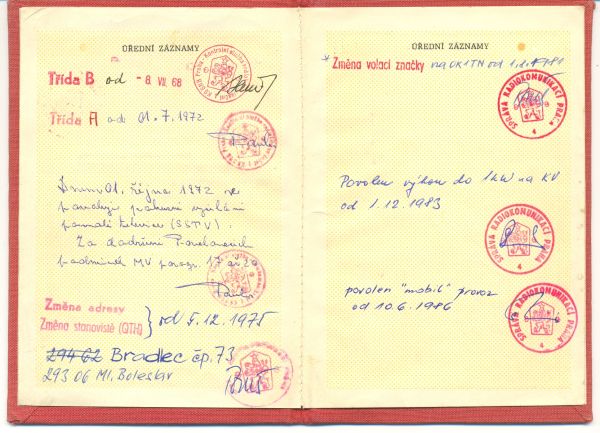 ÚŘEDNÍ ZÁZNAMY
Třída B od - 8. VII. 68
Třída A od 01. 7. 1972
Dnem 01. října 1972 se
povoluje pokusné vysílání
pomalé televize (SSTV).
Za dodržení Povolovacích
podmínek MV paragr. 17 a 20
Změna adresy
Změna stanoviště (QTH) } od 5. 12. 1975
294 62 Bradlec čp. 73
293 06 Ml. Boleslav
ÚŘEDNÍ ZÁZNAMY
* Změna volací značky na OK1TN od 1.1.1981
SPRÁVA RADIOKOMUNIKACÍ PRAHA
4
Povolen výkon do 1kW na KV
od 1. 12. 1983
SPRÁVA RADIOKOMUNIKACÍ PRAHA
4
povolen "mobil" provoz
od 10. 6. 1986
SPRÁVA RADIOKOMUNIKACÍ PRAHA
4